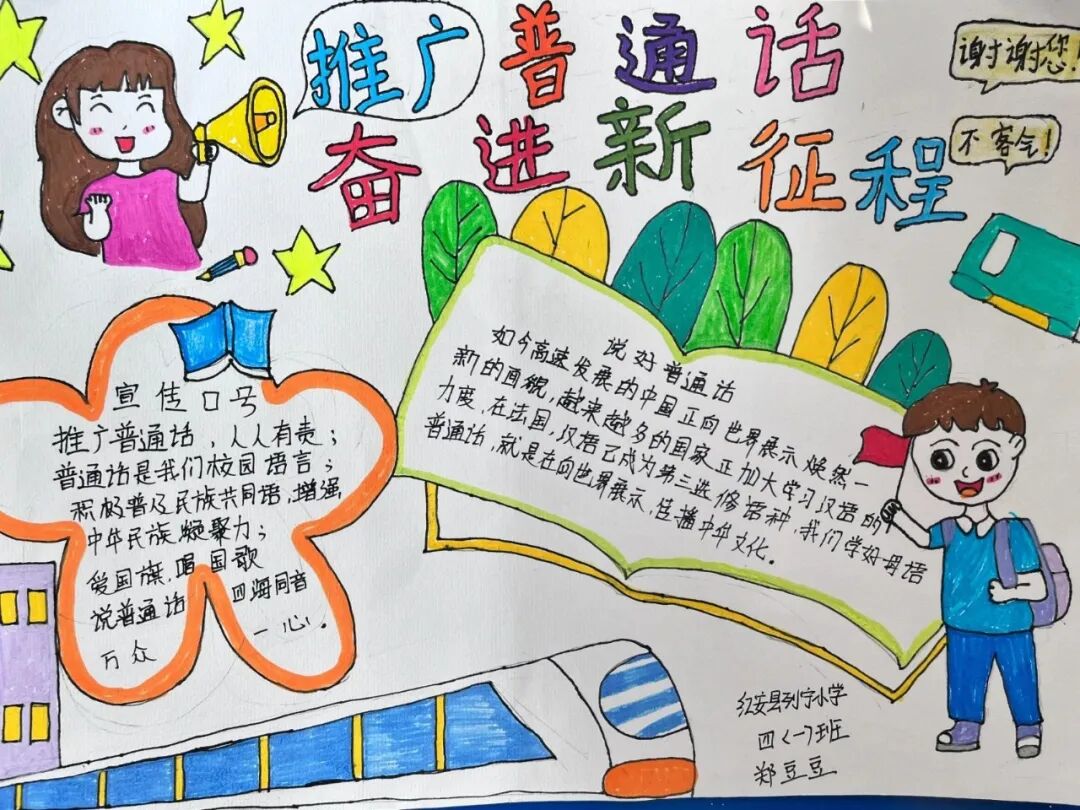 推广普通话
奋进新征程
谢谢您!
不客气!
宣传口号
推广普通话，人人有责；
普通话是我们校园语言；
积极普及民族共同语，增强
中华民族凝聚力；
爱国旗，唱国歌
说普通话 四海同音
万众 一心。
说好普通话
如今高速发展的中国正向世界展示焕然一
新的面貌，越来越多的国家正加大学习汉语的
力度，在法国，汉语已成为第三选修语种，我们学好母语
普通话，就是在向世界展示，传播中华文化。
红安县列宁小学
四〈一〉班
郑豆豆